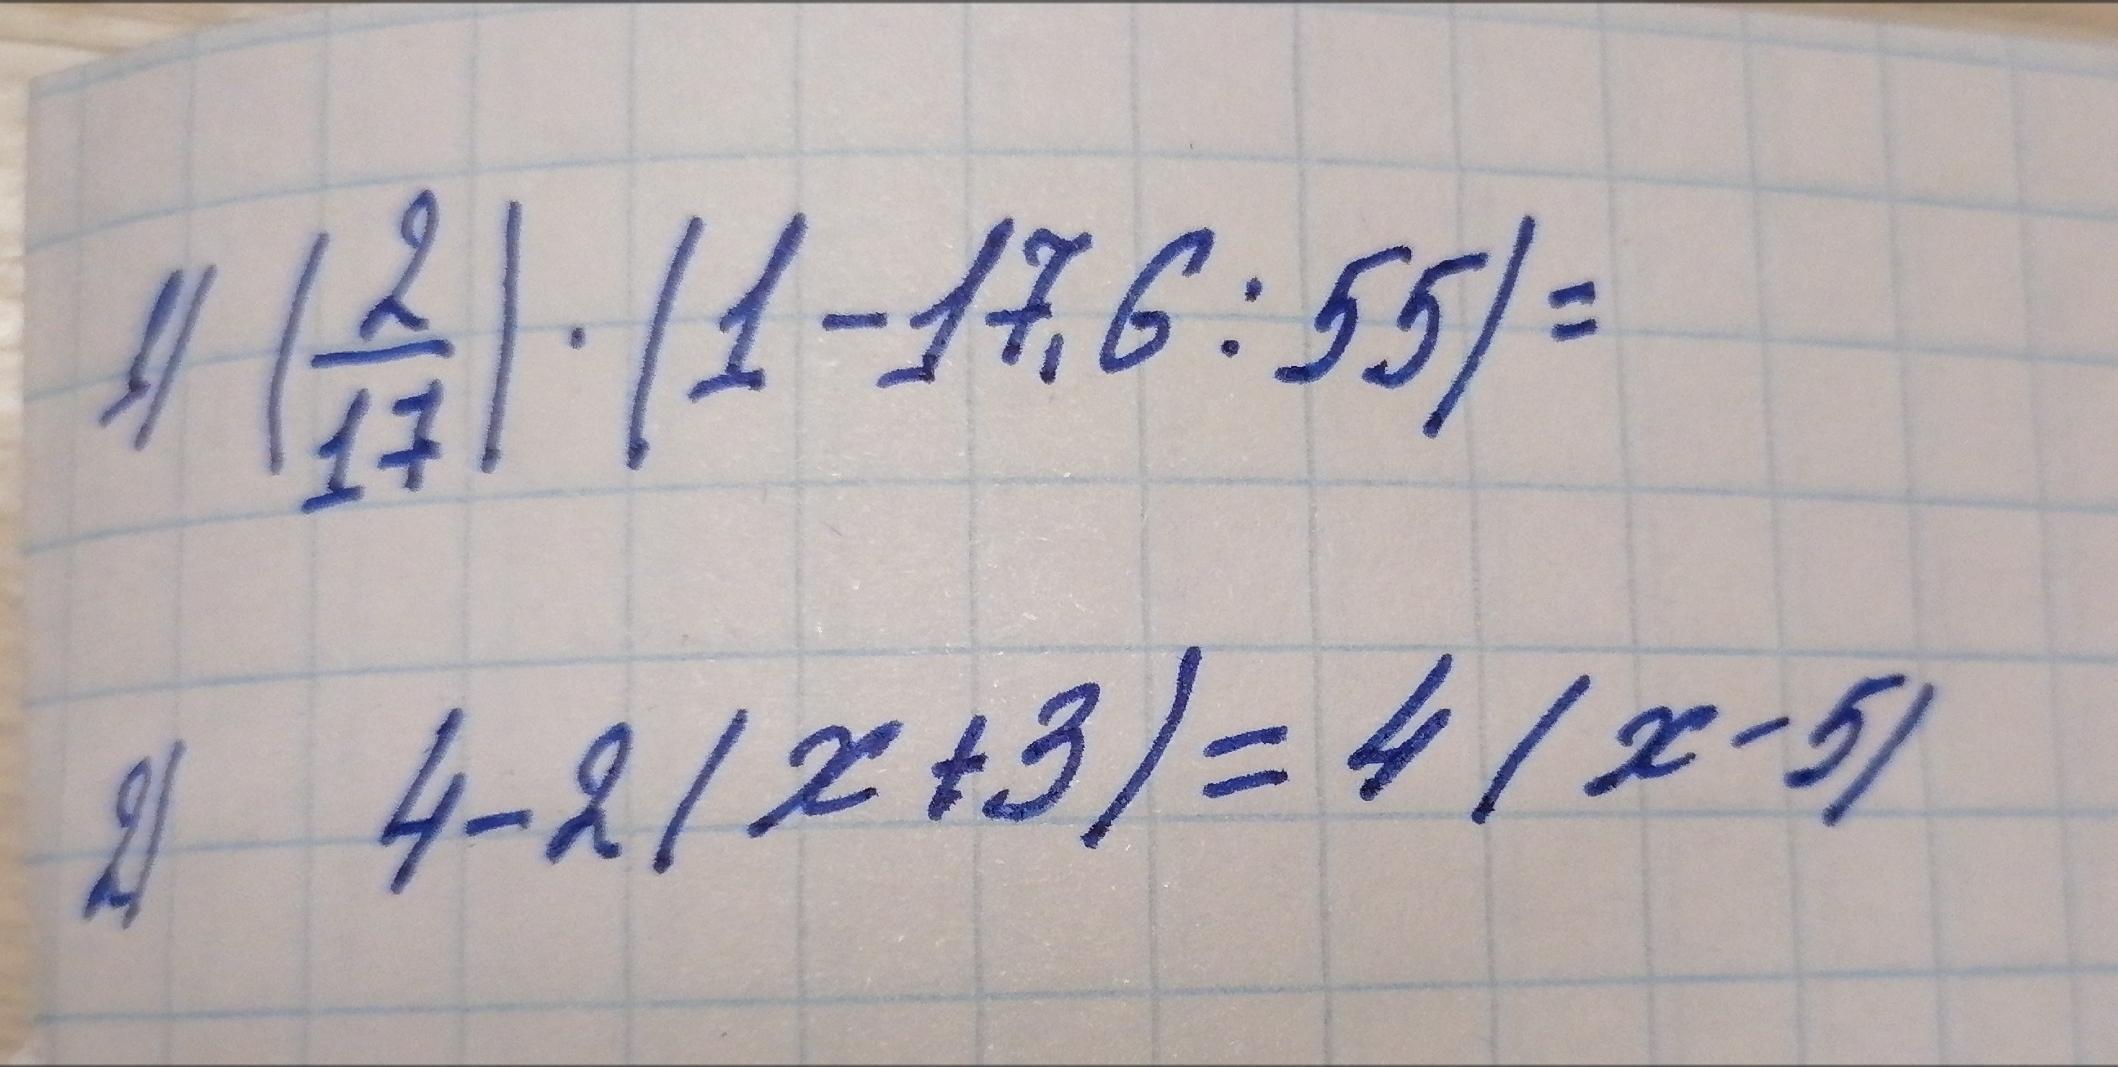 1) (2/17) · (1 - 17,6 : 55) =
2) 4 - 2 (x + 3) = 4 (x - 5)